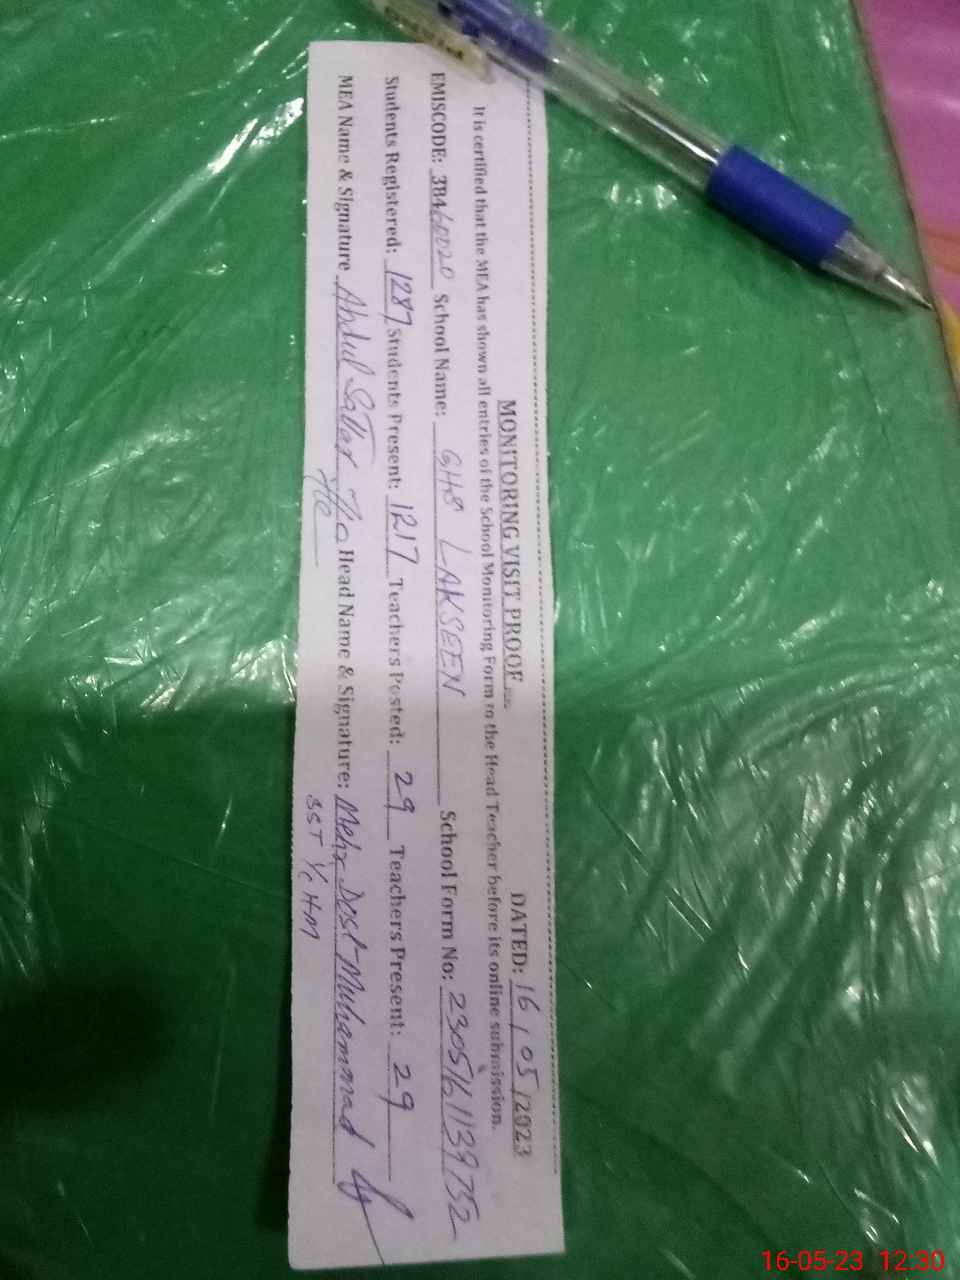 MONITORING VISIT PROOF DATED: 16/05/2023
It is certified that the MEA has shown all entries of the School Monitoring Form to the Head Teacher before its online submission.
EMISCODE: 38460020 School Name: GHS LAKSEEN School Form No: 2305161139752
Students Registered: 1287 Students Present: 1217 Teachers Posted: 29 Teachers Present: 29
MEA Name & Signature Abdul Sattar Head Name & Signature: Mehr Dost Muhammad
SST I/c HM
16-05-23 12.30